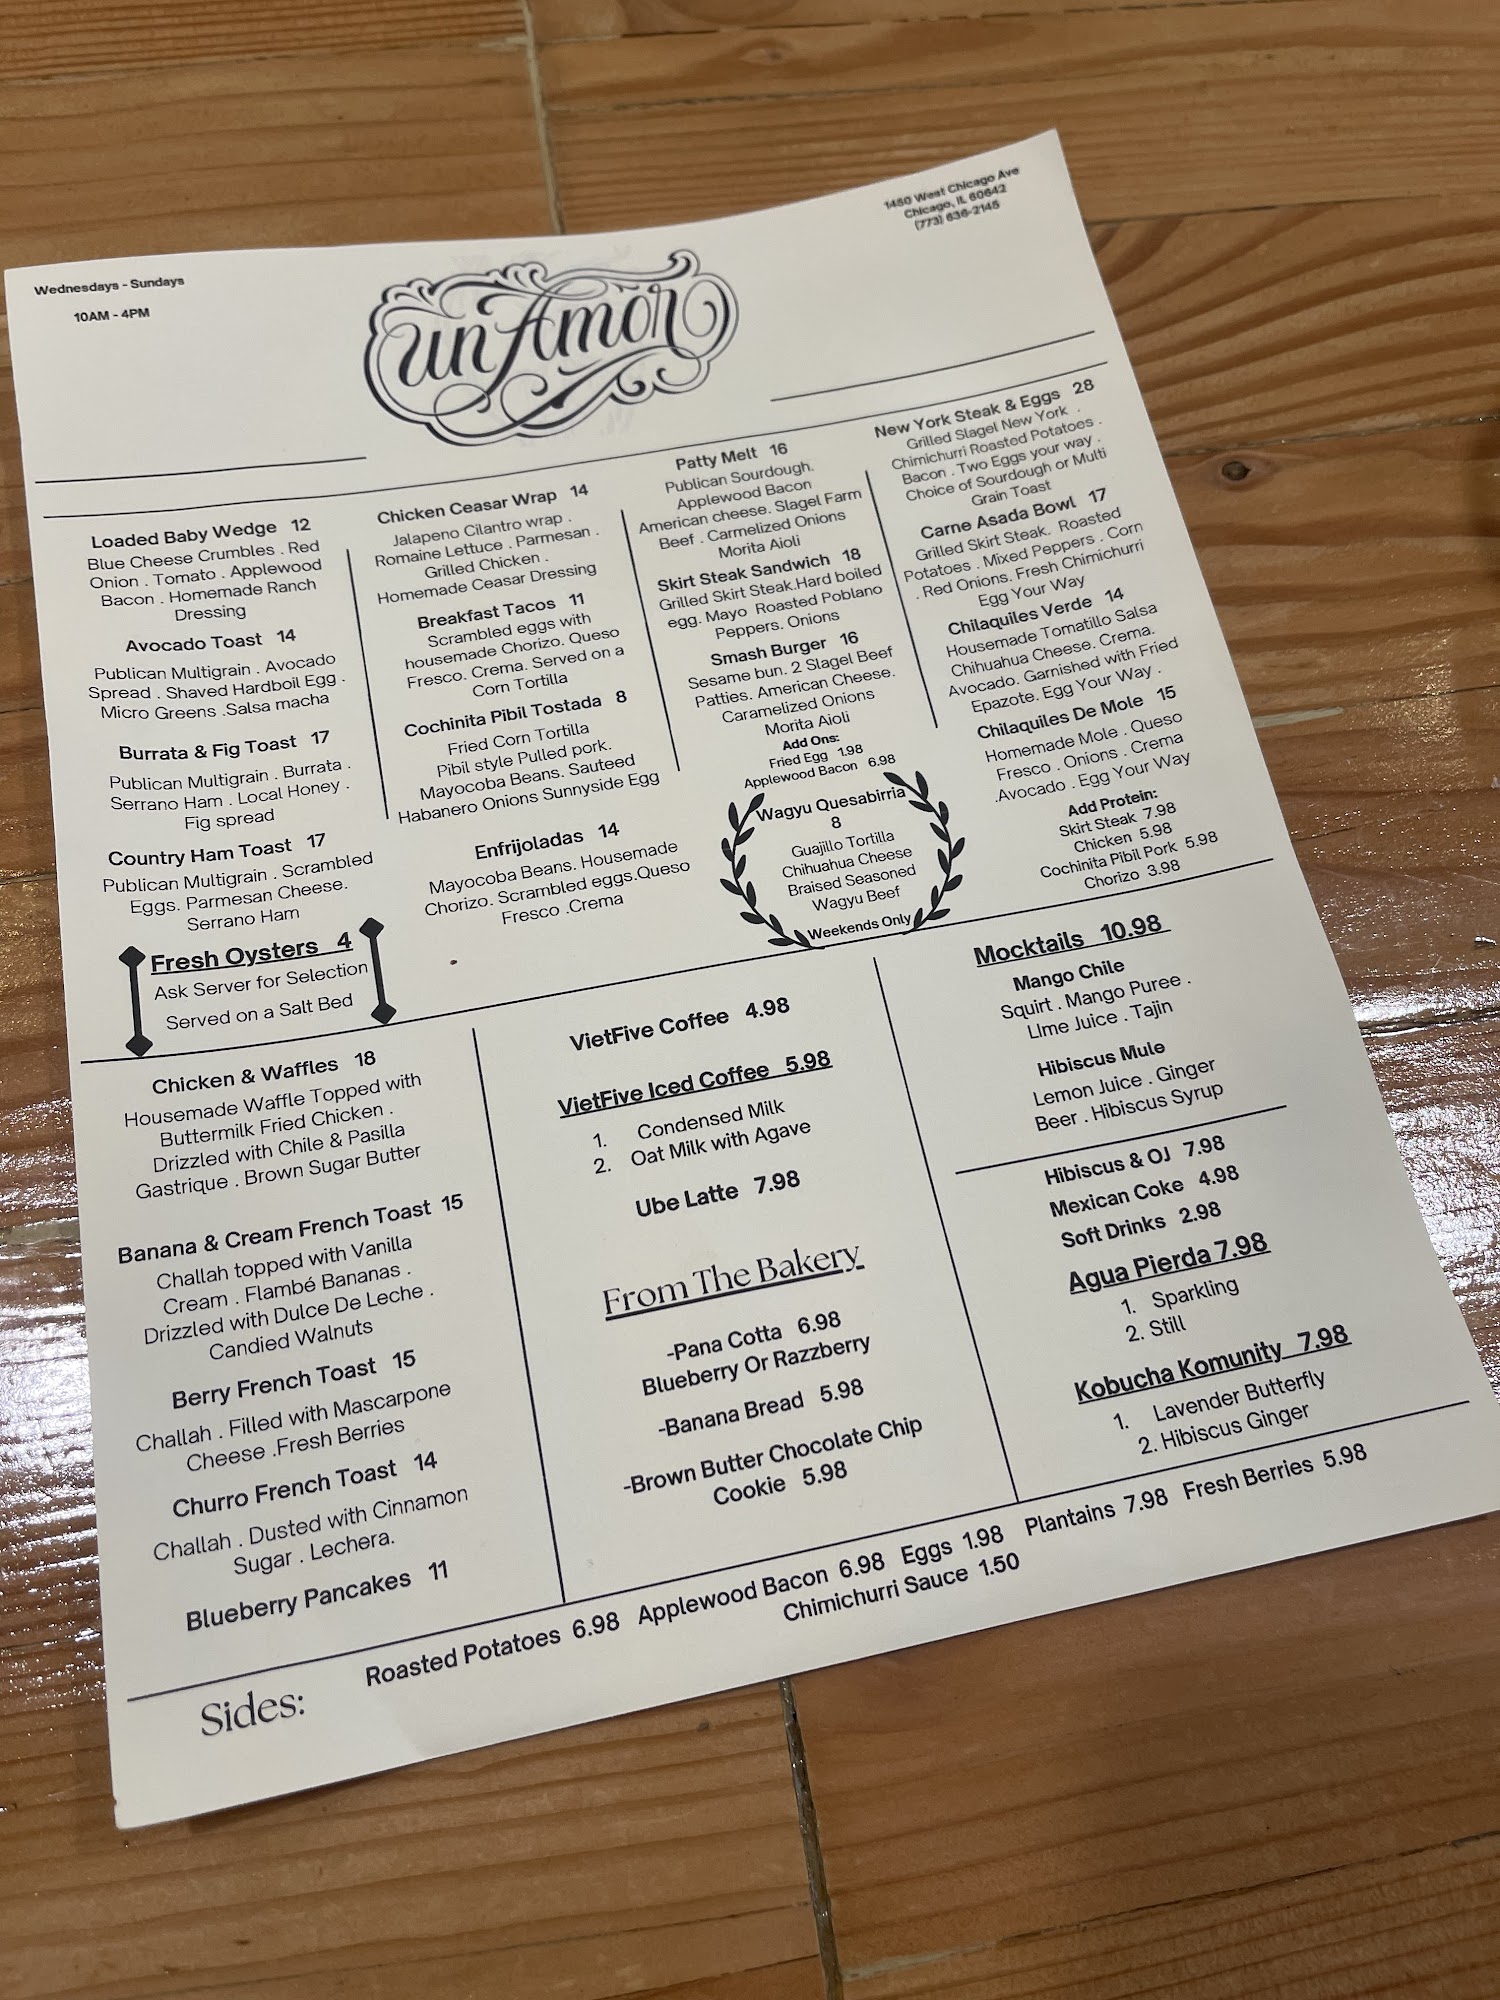 Wednesdays - Sundays
10AM - 4PM
un Amor
1450 West Chicago Ave
Chicago, IL 60642
(773) 636-2145
Loaded Baby Wedge 12
Blue Cheese Crumbles . Red
Onion . Tomato . Applewood
Bacon . Homemade Ranch
Dressing
Avocado Toast 14
Publican Multigrain . Avocado
Spread . Shaved Hardboil Egg .
Micro Greens .Salsa macha
Burrata & Fig Toast 17
Publican Multigrain . Burrata .
Serrano Ham . Local Honey .
Fig spread
Country Ham Toast 17
Publican Multigrain . Scrambled
Eggs. Parmesan Cheese.
Serrano Ham
Fresh Oysters 4
Ask Server for Selection
Served on a Salt Bed
Chicken Ceasar Wrap 14
Jalapeno Cilantro wrap .
Romaine Lettuce . Parmesan .
Grilled Chicken .
Homemade Ceasar Dressing
Breakfast Tacos 11
Scrambled eggs with
housemade Chorizo. Queso
Fresco. Crema. Served on a
Corn Tortilla
Cochinita Pibil Tostada 8
Fried Corn Tortilla
Pibil style Pulled pork.
Mayocoba Beans. Sauteed
Habanero Onions Sunnyside Egg
Enfrijoladas 14
Mayocoba Beans. Housemade
Chorizo. Scrambled eggs.Queso
Fresco .Crema
Patty Melt 16
Publican Sourdough.
Applewood Bacon
American cheese. Slagel Farm
Beef . Carmelized Onions
Morita Aioli
Skirt Steak Sandwich 18
Grilled Skirt Steak.Hard boiled
egg. Mayo Roasted Poblano
Peppers. Onions
Smash Burger 16
Sesame bun. 2 Slagel Beef
Patties. American Cheese.
Caramelized Onions
Morita Aioli
Add Ons:
Fried Egg 1.98
Applewood Bacon 6.98
Wagyu Quesabirria
8
Guajillo Tortilla
Chihuahua Cheese
Braised Seasoned
Wagyu Beef
Weekends Only
New York Steak & Eggs 28
Grilled Slagel New York .
Chimichurri Roasted Potatoes .
Bacon . Two Eggs your way .
Choice of Sourdough or Multi
Grain Toast
Carne Asada Bowl 17
Grilled Skirt Steak. Roasted
Potatoes . Mixed Peppers . Corn
. Red Onions. Fresh Chimichurri
Egg Your Way
Chilaquiles Verde 14
Housemade Tomatillo Salsa
Chihuahua Cheese. Crema.
Avocado. Garnished with Fried
Epazote. Egg Your Way .
Chilaquiles De Mole 15
Homemade Mole . Queso
Fresco . Onions . Crema
.Avocado . Egg Your Way
Add Protein:
Skirt Steak 7.98
Chicken 5.98
Cochinita Pibil Pork 5.98
Chorizo 3.98
Chicken & Waffles 18
Housemade Waffle Topped with
Buttermilk Fried Chicken .
Drizzled with Chile & Pasilla
Gastrique . Brown Sugar Butter
Banana & Cream French Toast 15
Challah topped with Vanilla
Cream . Flambé Bananas .
Drizzled with Dulce De Leche .
Candied Walnuts
Berry French Toast 15
Challah . Filled with Mascarpone
Cheese .Fresh Berries
Churro French Toast 14
Challah . Dusted with Cinnamon
Sugar . Lechera.
Blueberry Pancakes 11
VietFive Coffee 4.98
VietFive Iced Coffee 5.98
1. Condensed Milk
2. Oat Milk with Agave
Ube Latte 7.98
From The Bakery
-Pana Cotta 6.98
Blueberry Or Razzberry
-Banana Bread 5.98
-Brown Butter Chocolate Chip
Cookie 5.98
Mocktails 10.98
Mango Chile
Squirt . Mango Puree .
LIme Juice . Tajin
Hibiscus Mule
Lemon Juice . Ginger
Beer . Hibiscus Syrup
Hibiscus & OJ 7.98
Mexican Coke 4.98
Soft Drinks 2.98
Agua Pierda 7.98
1. Sparkling
2. Still
Kobucha Komunity 7.98
1. Lavender Butterfly
2. Hibiscus Ginger
Sides:
Roasted Potatoes 6.98 Applewood Bacon 6.98 Eggs 1.98 Plantains 7.98 Fresh Berries 5.98
Chimichurri Sauce 1.50